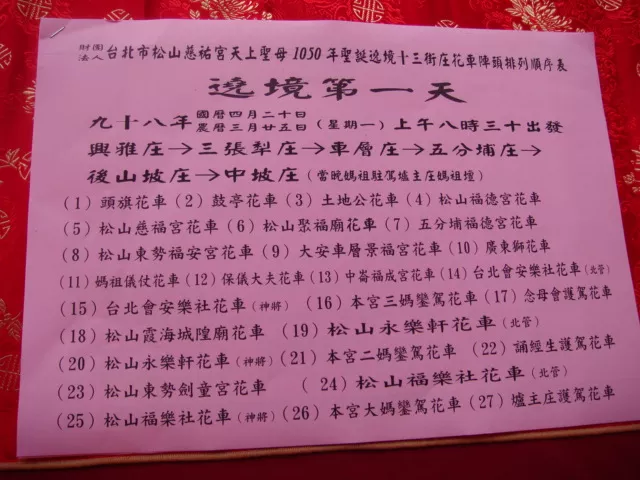 財團法人 台北市松山慈祐宮天上聖母1050年聖誕遶境十三街庄花車陣頭排列順序表
遶境第一天
九十八年 國曆四月二十日 農曆三月廿五日 (星期一) 上午八時三十出發
興雅庄→三張犁庄→車層庄→五分埔庄→
後山坡庄→中坡庄 (當晚媽祖駐駕爐主庄媽祖壇)
(1) 頭旗花車 (2) 鼓亭花車 (3) 土地公花車 (4) 松山福德宮花車
(5) 松山慈福宮花車 (6) 松山聚福廟花車 (7) 五分埔福德宮花車
(8) 松山東勢福安宮花車 (9) 大安車層景福宮花車 (10) 廣東獅花車
(11) 媽祖儀仗花車 (12) 保儀大夫花車 (13) 中崙福成宮花車 (14) 台北會安樂社花車(北管)
(15) 台北會安樂社花車(神將) (16) 本宮三媽鑾駕花車 (17) 念母會護駕花車
(18) 松山霞海城隍廟花車 (19) 松山永樂軒花車(北管)
(20) 松山永樂軒花車(神將) (21) 本宮二媽鑾駕花車 (22) 誦經生護駕花車
(23) 松山東勢劍童宮花車 (24) 松山福樂社花車(北管)
(25) 松山福樂社花車(神將) (26) 本宮大媽鑾駕花車 (27) 爐主庄護駕花車